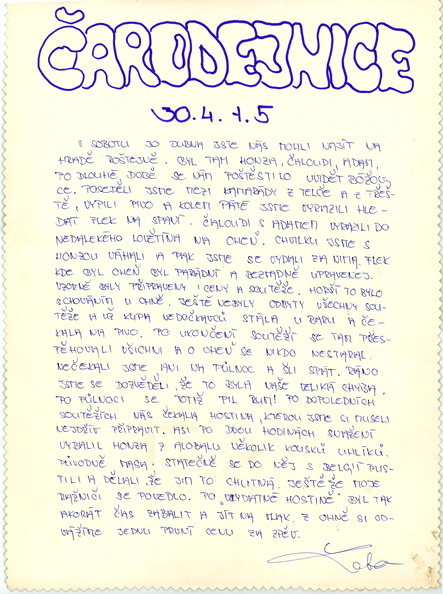 ČARODEJNICE
30.4.-1.5
V SOBOTU 30 DUBNA JSTE NÁS MOHLI NAJÍT NA
HRADĚ ROŠTEJNĚ. BYL TAM HONZA, ČALOUDI, ADAM,
PO DLOUHÉ DOBĚ SE NÁM POŠTĚSTILO UVIDĚT
CE. POSEDĚLI JSME MEZI KAMARÁDY Z TELČE A Z TŘEŠ-
TĚ, VYPILI PIVO A KOLEM PÁTÉ JSME VYRAZILI HLE-
DAT FLEK NA SPANÍ. ČALOUDI S ADAMEM VYRAZILI DO
NEDALEKÉHO LOVĚTÍNA NA OHEŇ. CHVILKU JSME S
HONZOU VÁHALI A PAK JSME SE VYDALI ZA NIMA. FLEK
KDE BYL OHEŇ BYL PARÁDNÍ A BEZVADNĚ UPRAVENEJ.
VZORNĚ BYLY PŘIPRAVENY I CENY A SOUTĚŽE. HORŠÍ TO BYLO
S CHOVÁNÍM U OHNĚ. JEŠTĚ NEBYLY ODBYTY VŠECHNY SOU-
TĚŽE A UŽ KUPA NEDOČKAVCŮ STÁLA U BARU A ČE-
KALA NA PIVO. PO UKONČENÍ SOUTĚŽÍ SE TAM PŘES-
TĚHOVALI VŠICHNI A O OHEŇ SE NIKDO NESTARAL.
NEČEKALI JSME ANI NA PŮLNOC A ŠLI SPÁT. RÁNO
JSME SE DOZVĚDĚLI, ŽE TO BYLA NAŠE VELIKÁ CHYBA.
PO PŮLNOCI SE TOTIŽ PIL RUM! PO DOPOLEDNÍCH
SOUTĚŽÍCH NÁS ČEKALA HOSTINA, KTEROU JSME SI MUSELI
NEJDŘÍV PŘIPRAVIT. ASI PO DVOU HODINÁCH SNAŽENÍ
VYBALIL HONZA Z ALOBALU NĚKOLIK KOUSKŮ UHLÍKŮ,
PŮVODNĚ MASA. STATEČNĚ SE DO NĚJ S BELGIÍ PUS-
TILI A DĚLALI, ŽE JIM TO CHUTNÁ. JEŠTĚ ŽE MOJE
RAŽNIČÍ SE POVEDLO. PO „VYDATNÉ HOSTINĚ" BYL TAK
AKORÁT ČAS ZABALIT A JÍT NA VLAK. Z OHNĚ SI OD-
VÁŽÍME JEDNU PRVNÍ CENU ZA ZPĚV.